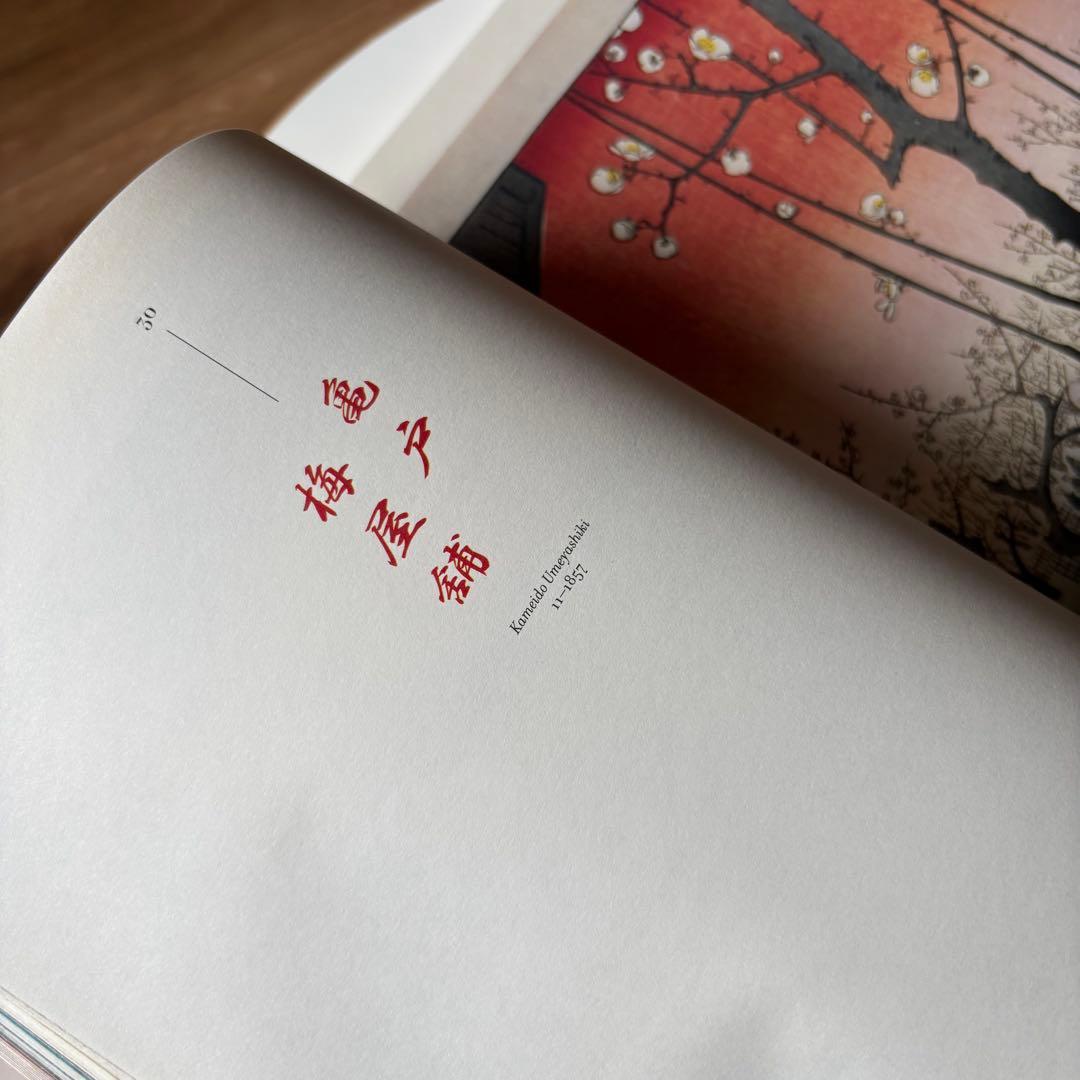 30
亀戸
梅屋舗
Kameido Umeyashiki
11–1857